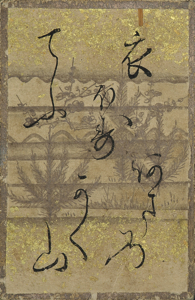 衣
ほす
てふ
あまの
かく
山